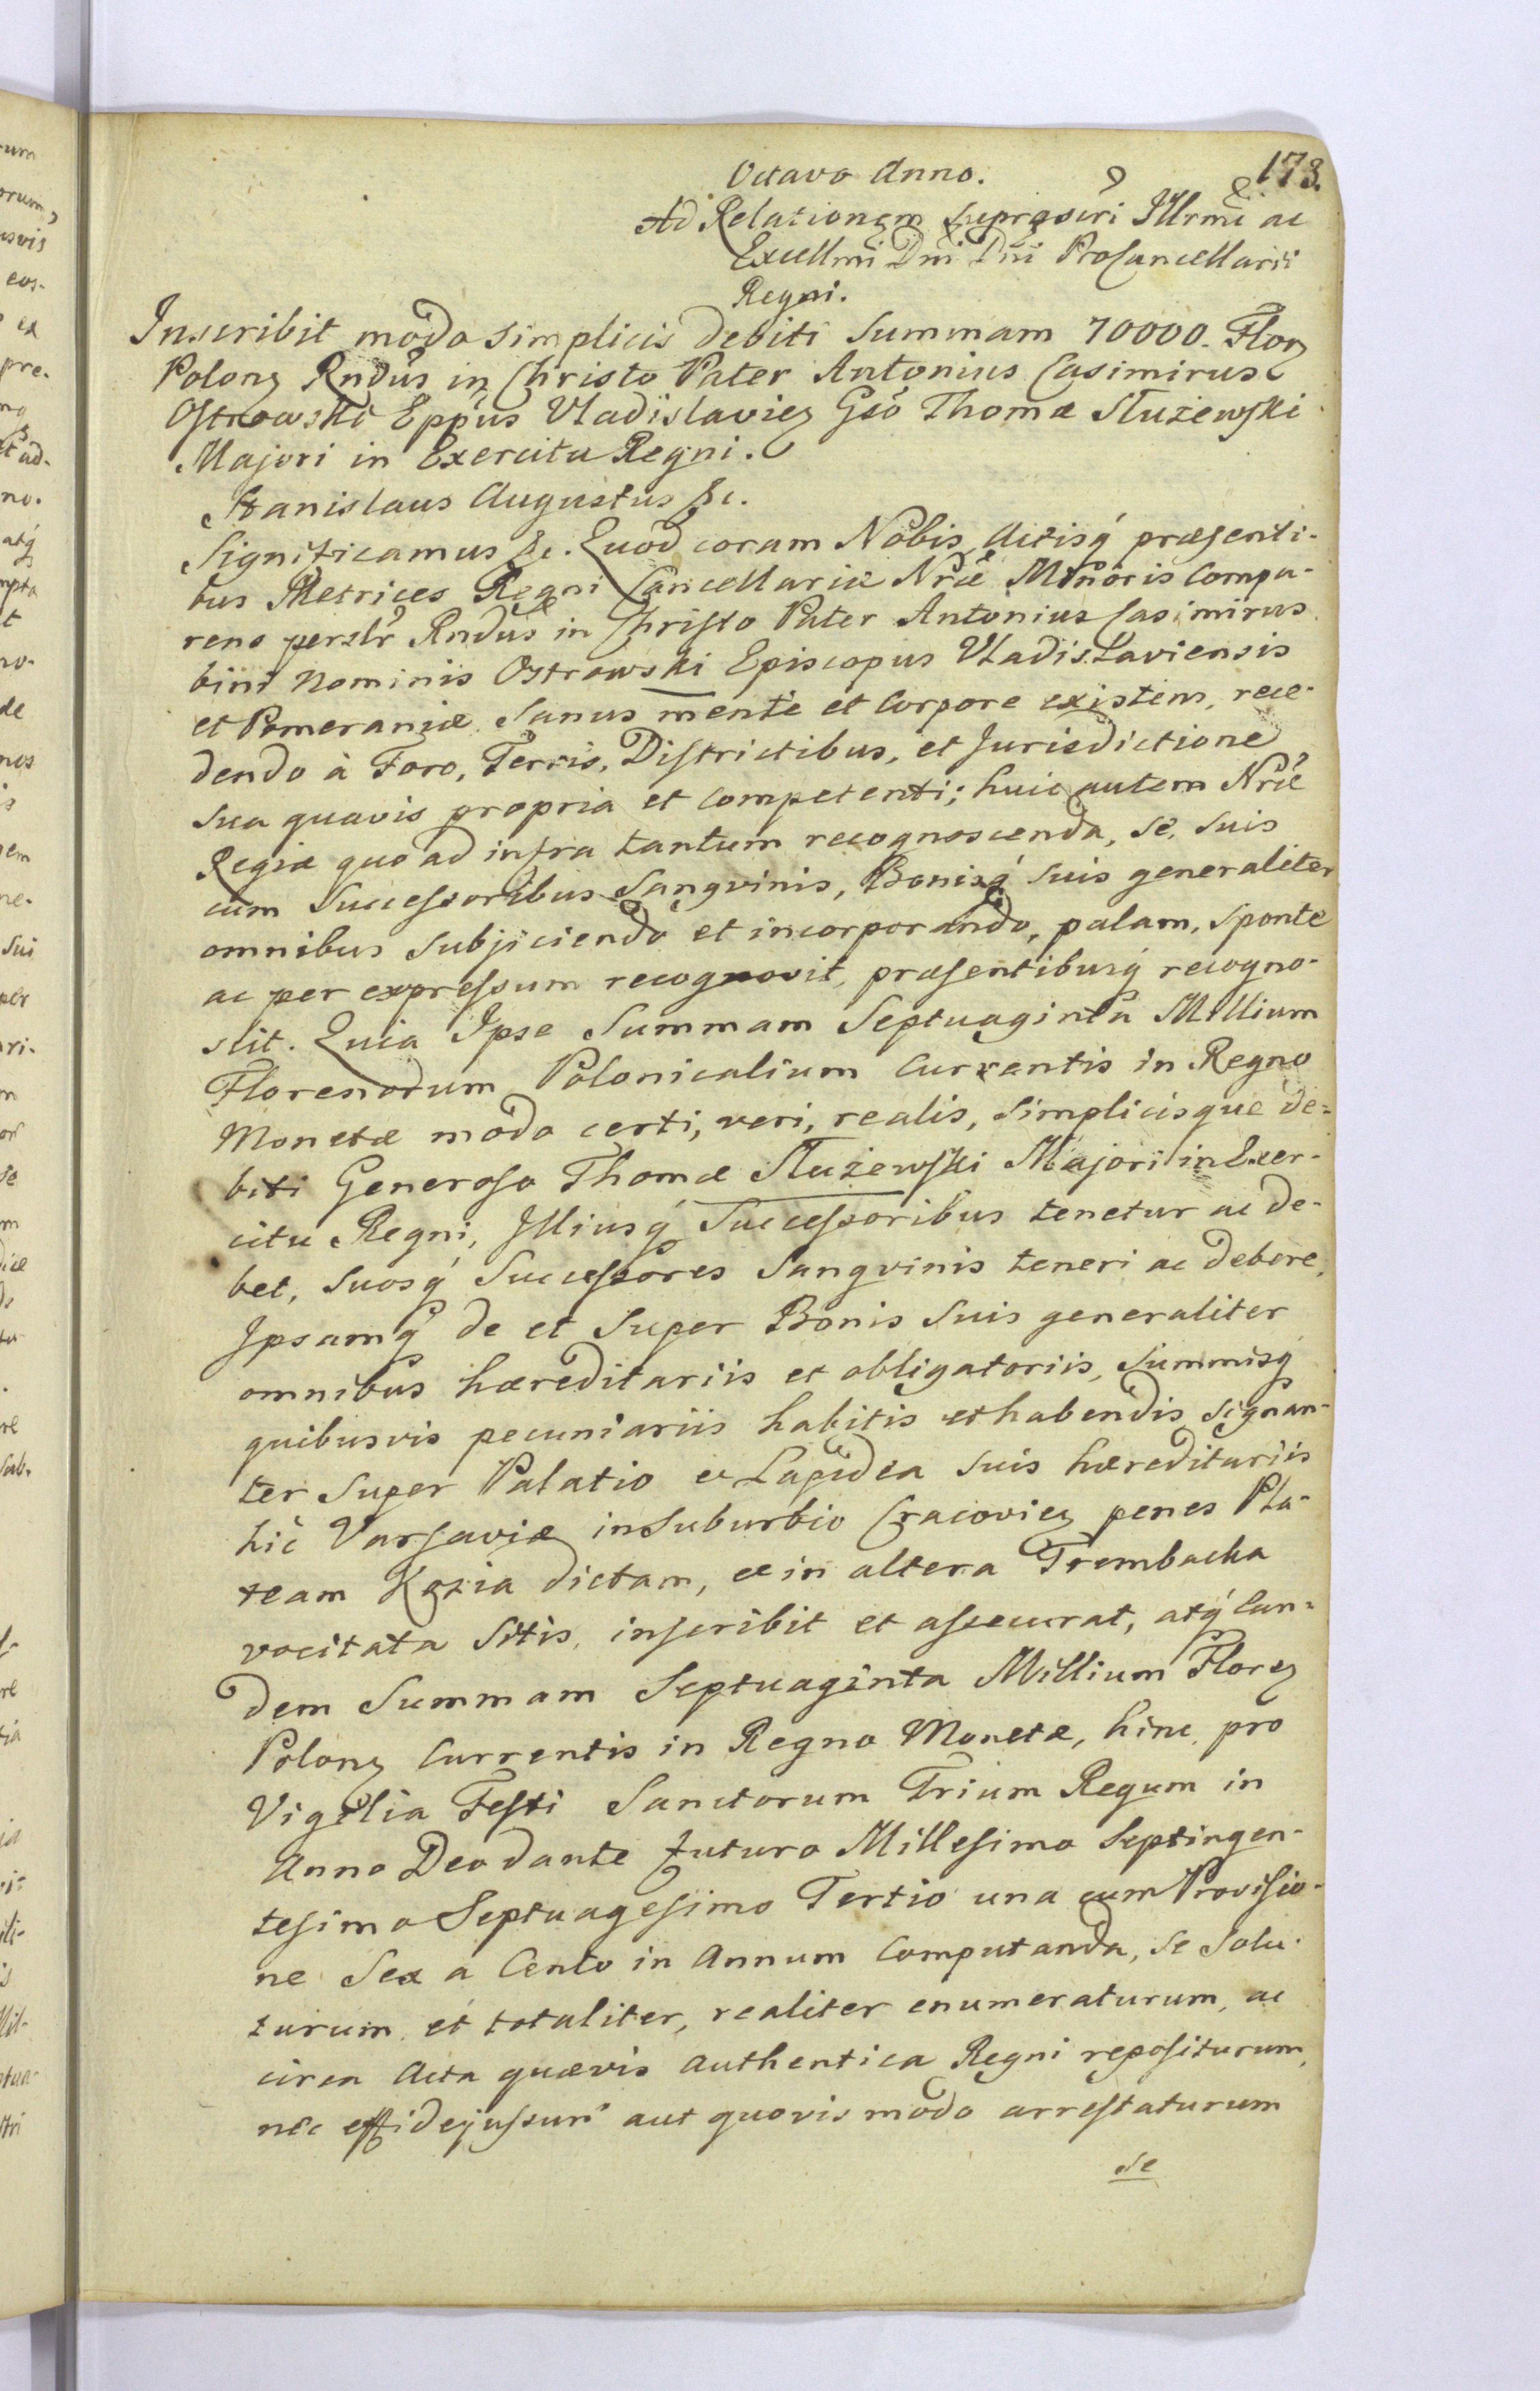 173.
Octavo Anno.
Ad Relationem suprascri Illrmi ac
Excellmi Dni Dni ProCancellarii
Regni.
Inscribit modo simplicis debiti Summam 70000. Flor
Polon Rndus in Christo Pater Antonius Casimirus
Ostrowski Eppus Vladislavien Gso Thomæ Służewski
Majori in Exercitu Regni.
Stanislaus Augustus &c.
Significamus &c. Quod coram Nobis Actisq́ præsenti-
bus Metrices Regni Cancellariæ Nræ Minoris Compa-
rens persłr Rndus in Christo Pater Antonius Casimirus
bini Nominis Ostrowski Episcopus Vladislaviensis
et Pomeraniæ Sanus mente et Corpore existens, rece-
dendo à Foro, Terris, Districtibus, et Jurisdictione
sua quavis propria et competenti; huic autem Nræ
Regiæ quo ad infra tantum recognoscenda, se, suis
cum Successoribus Sangvinis, Bonisq́ suis generaliter
omnibus subjiciendo et incorporando, palam, sponte
ac per expressum recognovit, præsentibusq́ recogno-
scit. Quia Ipse Summam Septuaginta Millium
Florenorum Polonicalium Currentis in Regno
Monetæ modo certi, veri, realis, simplicisque de=
biti Generoso Thomæ Służewski Majori in Exer-
citu Regni, Illiusq́ Successoribus tenetur ac de-
bet, suosq́ Successores Sangvinis teneri ac debere,
Ipsamq́ de et super Bonis suis generaliter
omnibus hæreditariis et obligatoriis, Summisq́
quibusvis pecuniariis habitis et habendis, signan-
ter super Palatio et Lapidea suis hæreditariis
hic Varsaviæ in Suburbio Cracovien penes Pla-
team Kozia dictam, et in altera Trembacka
vocitata Sitis, inscribit et assecurat, atq́ Ean=
dem Summam Septuaginta Millium Floren
Polon Currentis in Regno Monetæ, hinc pro
Vigilia Festi Sanctorum Trium Regum in
Anno Deo dante futuro Millesimo Septingen-
tesimo Septuagesimo Tertio una cum Provisio-
ne Sex a Cento in Annum Computanda, se solu-
turum et totaliter, realiter enumeraturum, ac
circa Acta quævis Authentica Regni repositurum,
nec effidejussuri aut quovis modo arrestaturum
se